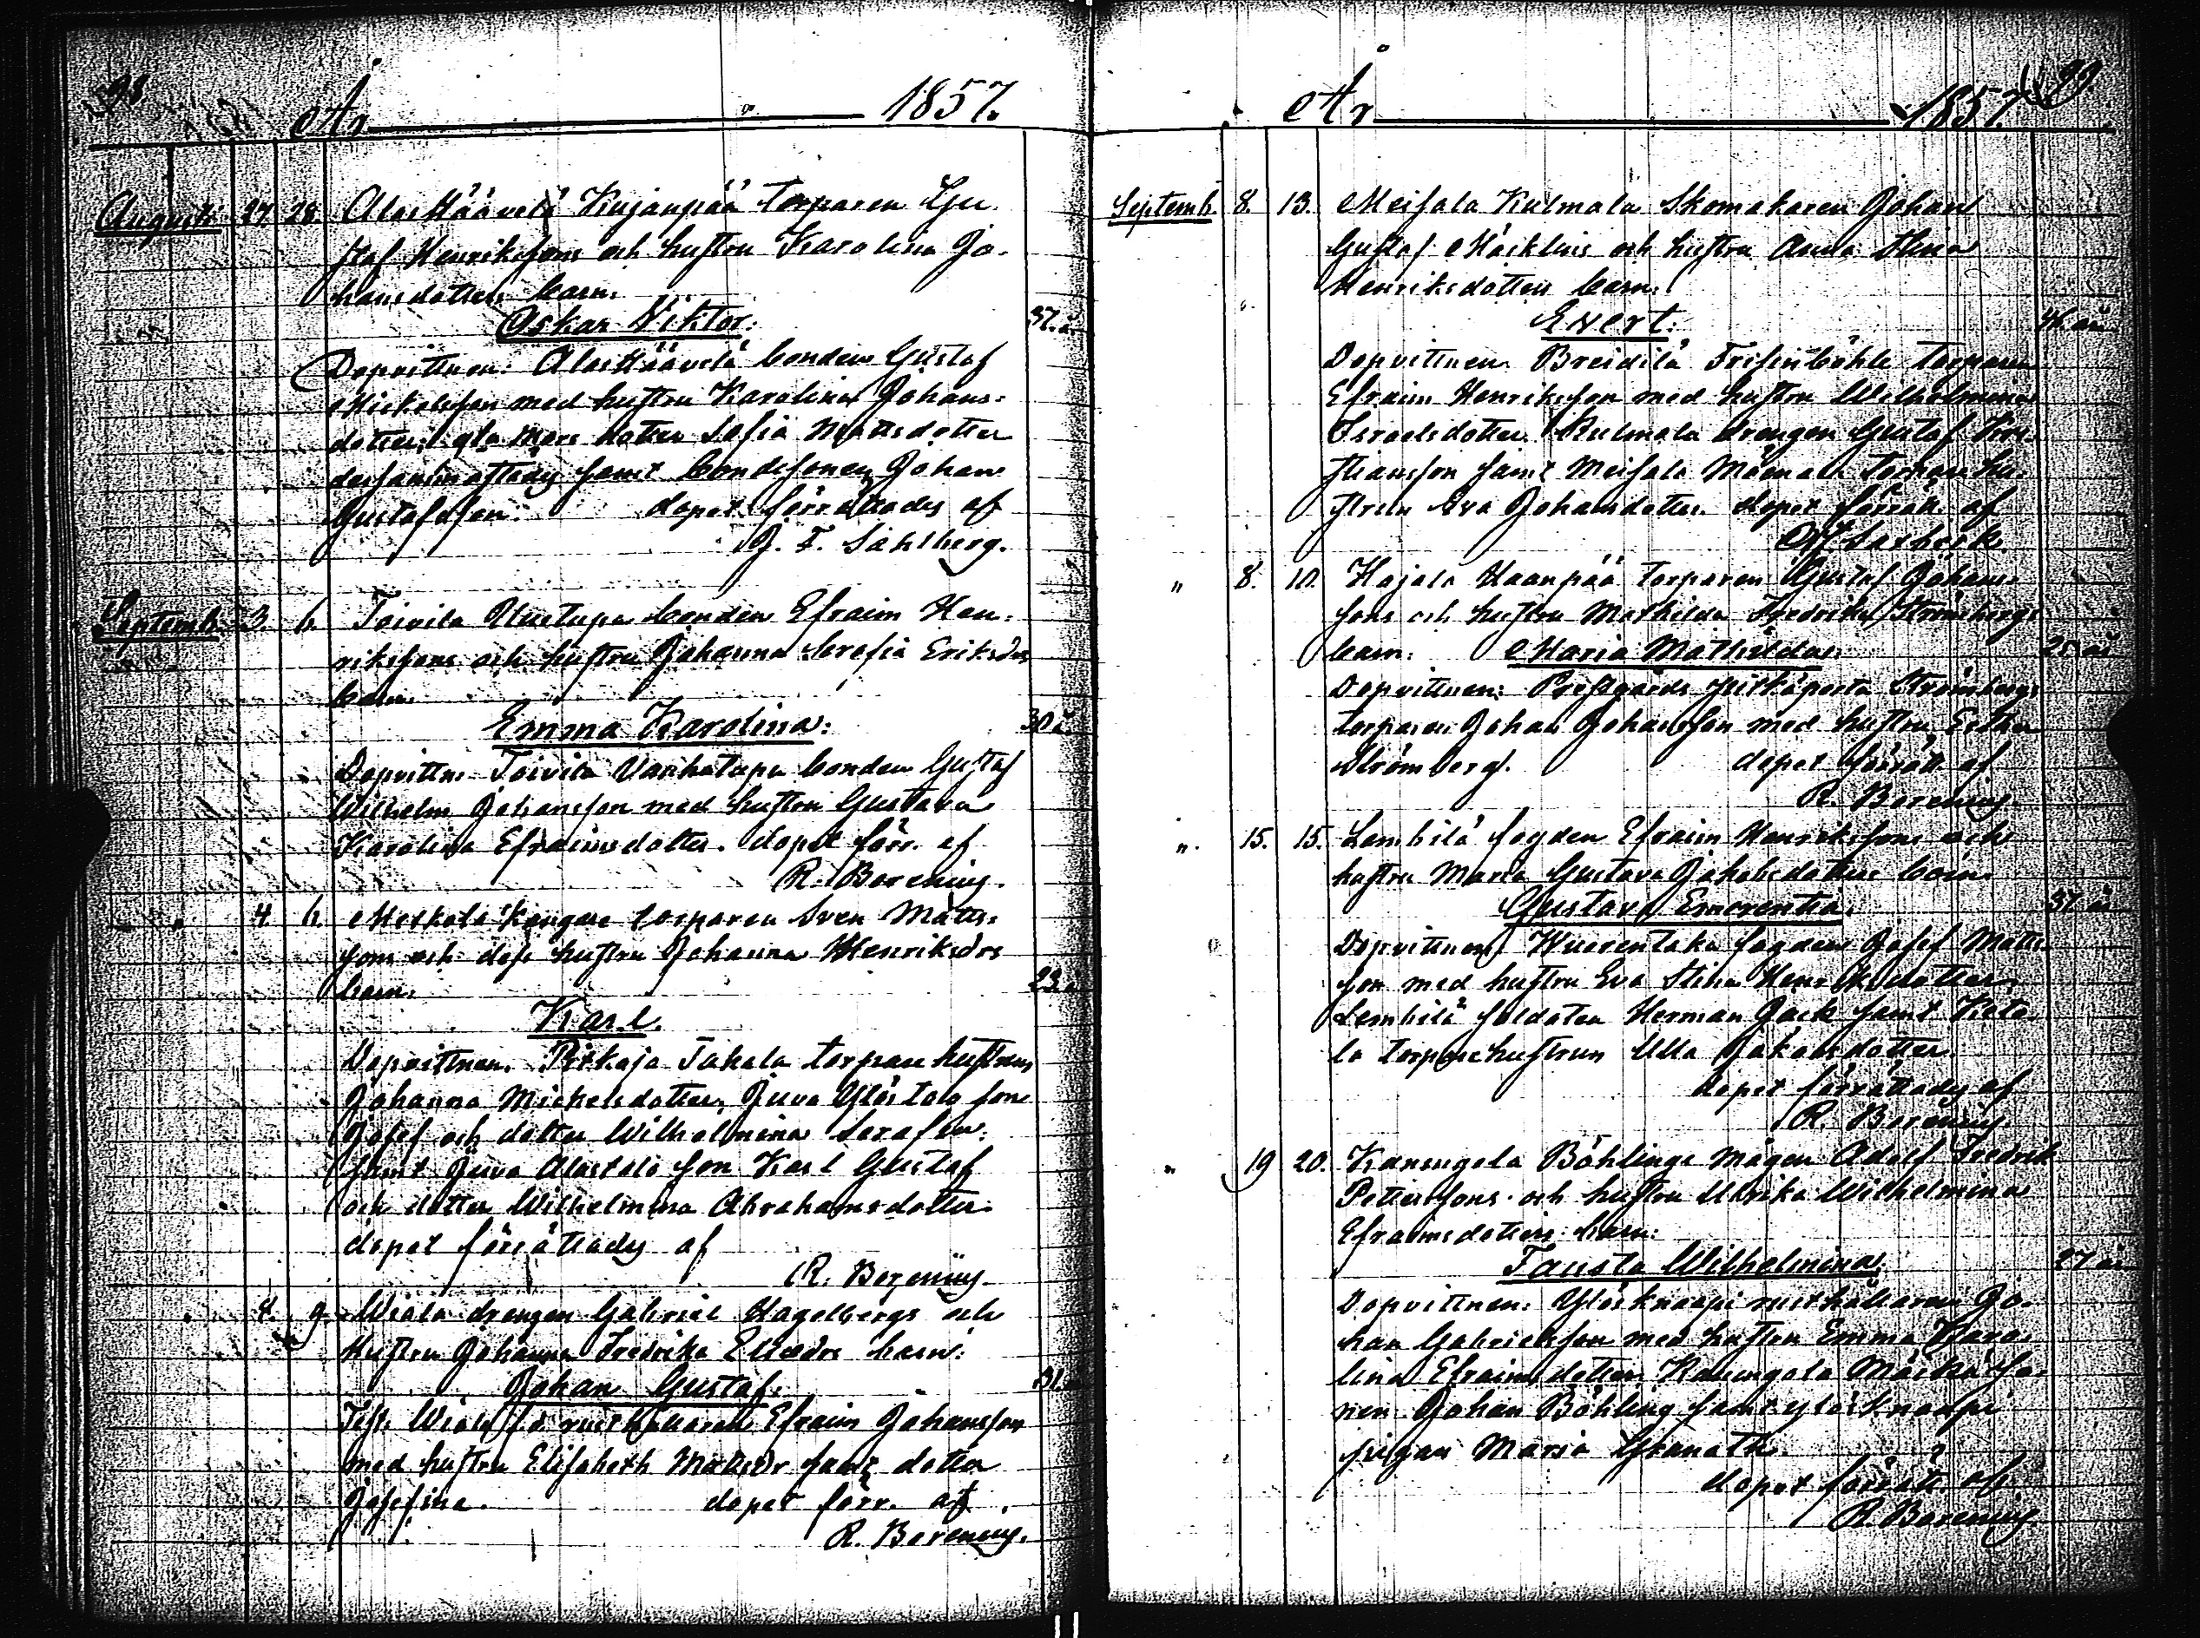 98.
År 1857.
Augusti 27. 28. Alas Häävelä Kujanpää torparen Gu
staf Henrikssons och hustru Karolina Jo-
hansdotters barn:
Oskar Viktor. 37. å
Dopvittnen: Alas Häävelä bonden Gustaf
Mickelsson med hustru Karolina Johans-
dotter, dotter Sofia Mattsdotter
samt bondesonen Johan
Gustafsson. dopet förrättades af
J. F. Sahlberg.
Septemb. 3. 6. Toivila Uusitupa bonden Efraim Hen-
rikssons och hustru Johanna Brofia Eriksdrs
barn.
Emma Karolina. 30 å
Dopvittn. Toivila Vanhatupa bonden Gustaf
Wilhelm Johansson med hustru Gustava
Karolina Efraimsdotter. dopet förr. af
R. Borenius.
" 4. 6. torparen Sven Matts-
sons och dess hustru Johanna Henriksdrs
barn. 23. å
Karl.
Dopvittnen. Pitkäja Tahala torpare hustrun
Johanna Mickelsdotter, Juva Ylöstalo son
Josef och dotter Wilhelmina Serafina
samt Juva Alastalo son Karl Gustaf
och dotter Wilhelmina Abrahamsdotter.
dopet förrättades af
R. Borenius.
" 4. 9. Wiala drengen Gabriel Hagelbergs och
Hustru Johanna Fredrika Eliaedrs barn:
Johan Gustaf. 31. å
Test. Wiala rusthållaren Efraim Johansson
med hustru Elisabeth Mattsdr samt dotter
Josefina. dopet förr. af
R. Borenius.
99.
År 1857.
Septemb. 8. 13. Meisala Kulmala Skomakaren Johan
Gustaf Mäcklins och hustru Anna Stina
Henriksdotters barn:
Evert.
Dopvittnen. Breidilä Frisinböhle torparen
Efraim Henriksson med hustru Wilhelmina
Israelsdotter. Kulmala drengen Gustaf Kri
stiansson samt Meisala torpare hu-
strun Eva Johansdotter. dopet förrätt. af

" 8. 10. Kojala Haanpää torparen Gustaf Johans-
sons och hustru Mathilda Fredrika Strömbergs
barn: Maria Mathilda. 25 år
Dopvittnen: Prestgårds Strömbergs
torparen Johan Johansson med hustru Esther
Strömberg. dopet förrätt. af
R. Borenius.
" 15. 15. Lembilä fogden Efraim Henrikssons och
hustru Maria Gustava Jakobsdotters barn.
Gustava Emerentia. 37 år
Dopvittnen. Wuorentaka fogden Josef Matts-
son med hustru Eva Stina Henriksdotter.
Lembilä soldaten Herman Jack samt Kieta
la torparehustrun Ulla Johansdotter.
dopet förrättades af
R. Borenius.
" 19 20. Kanungela Böhlings mågen Adolf Fredrik
Petterssons och hustru Ulrika Wilhelmina
Efraimsdotters barn:
Fausta Wilhelmina. 27 år
Dopvittnen. Ylösknaapi rusthållaren Jo-
han Gabrielsson med hustru Emma Karo-
lina Efraimsdotter. Kanungela
Johan Böhling samt Ylösknaapi
pigan Maria Granath.
dopet förrätt. af
R. Borenius.